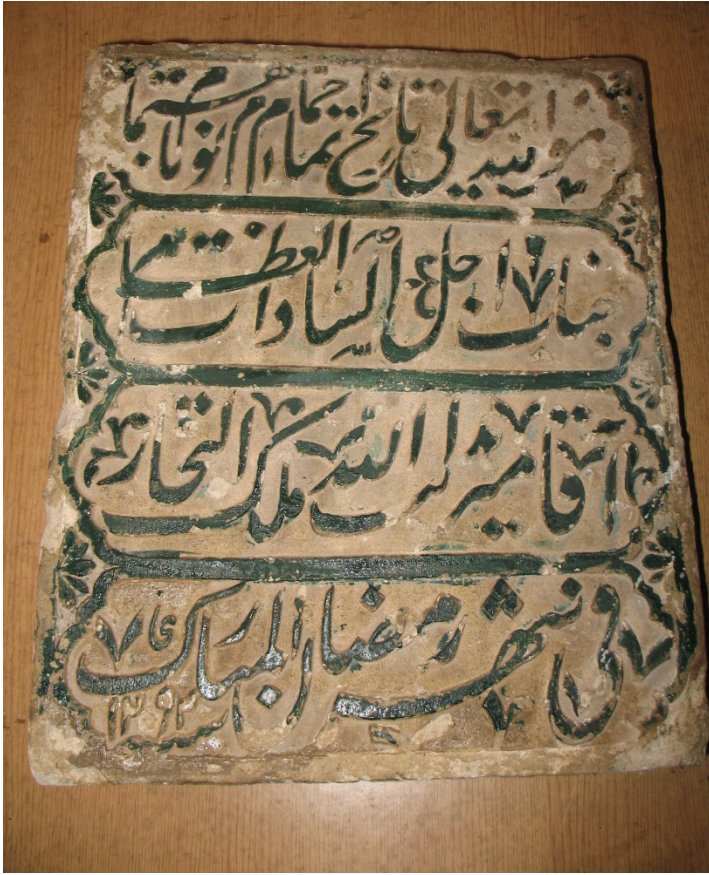 هو تعالی تاریخ اتمام حمام نو
جناب اجل السادات العظام
آقا میرزا الله ملک التجار
فی شهر رمضان المبارک
۱۲۹۲